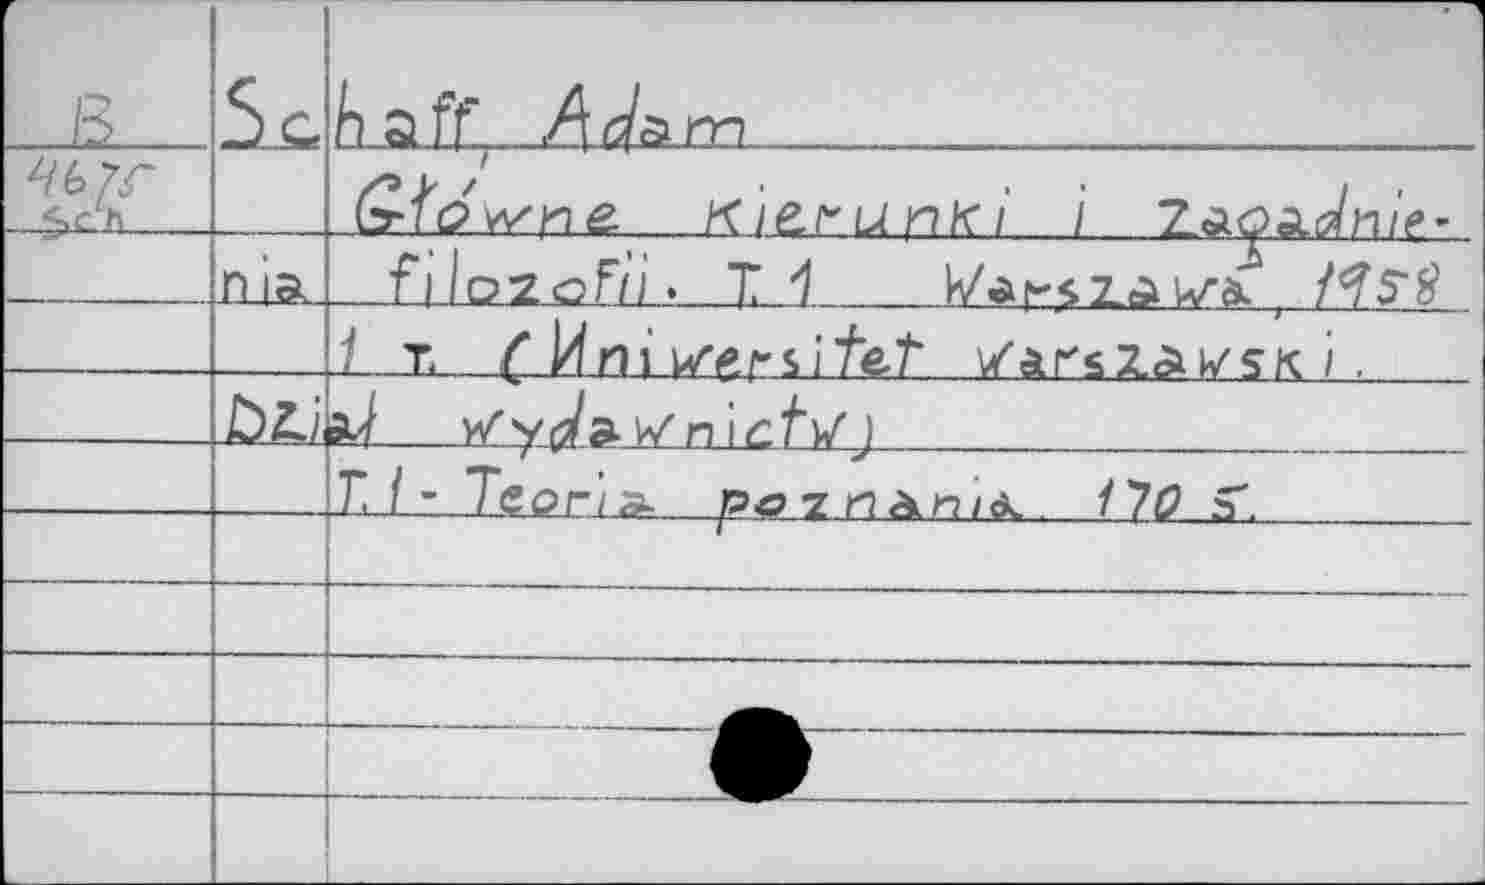 B Schaff, Adam
4675 Główne kierunki i zagadnie-
Sch
nia filozofii. T. 1 Warszawa, 1958
1 T. (Uniwersitet Warszawski.
Dział wydawnictw)
T. 1 - Teoria poznania. 170 S.